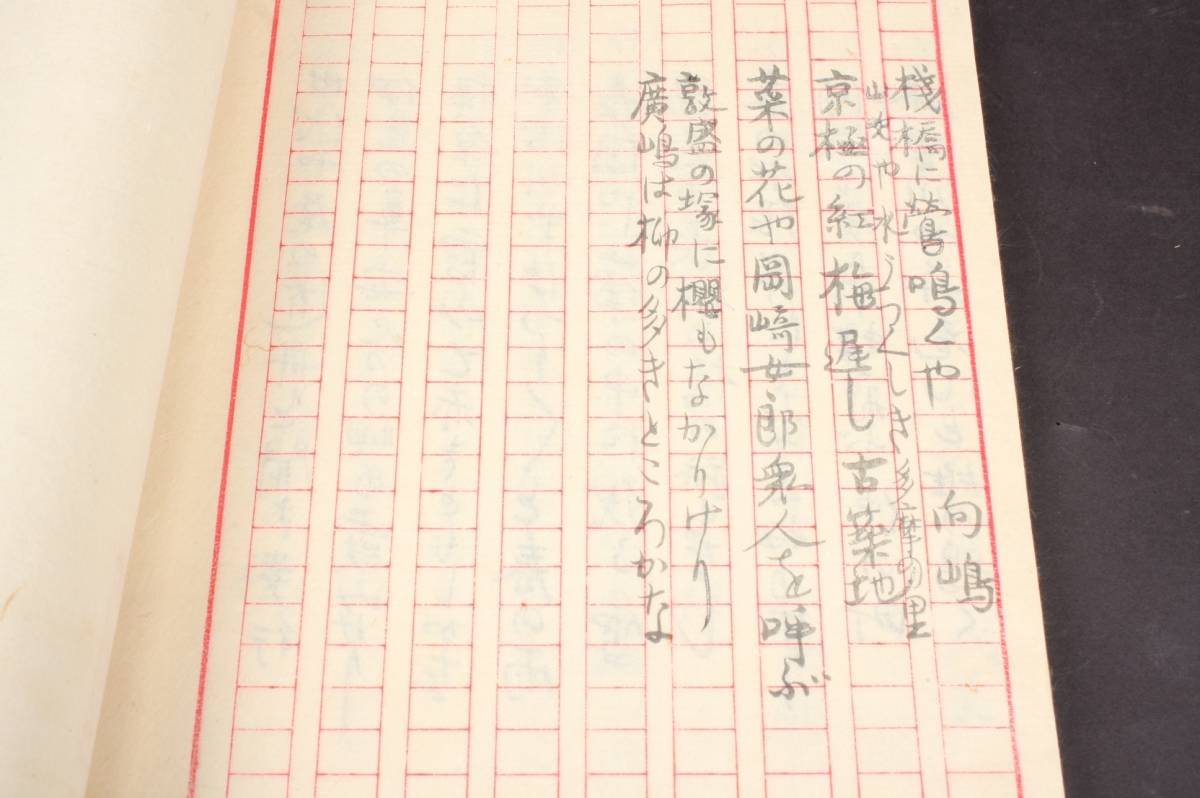 棧橋に鶯鳴くや向嶋
山吹や水うつくしき多摩の里
京極の紅梅遅し古築地
菜の花や岡崎女郎衆人を呼ぶ
敦盛の塚に櫻もなかりけり
廣嶋は柳の多きところかな